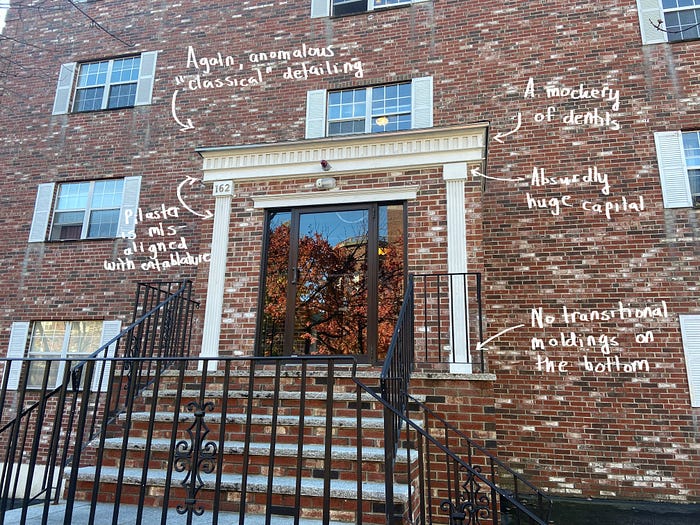 Again, anomalous
"classical" detailing
A mockery
of dentils
162
Absurdly
huge capital
Pilaster
is mis-
aligned
with entablature
No transitional
moldings on
the bottom